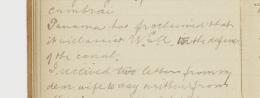 Cambrai
Panama has proclaimed that
it will assist U.S.A. in the defense
of the canal.
I received two letters from my
dear wife to day written from